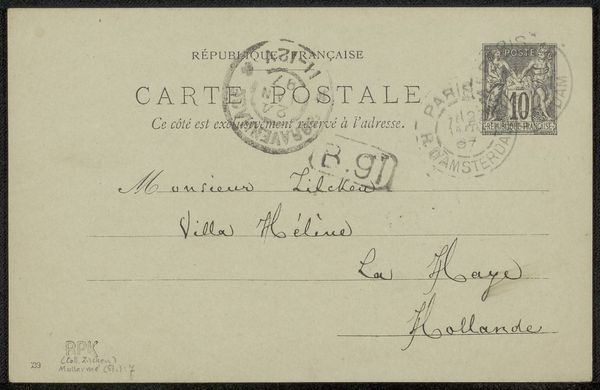 RÉPUBLIQUE FRANÇAISE
CARTE POSTALE
Ce côté est exclusivement réservé à l'adresse.
POSTE
10
RÉPUBLIQUE FRANÇAISE
PARIS
R. D'AMSTERDAM
97
B.91
Monsieur Zilcken
Villa Hélène
La Haye
Hollande
RPK
(Coll. Zilcken)
Mallarmé (St.): 7